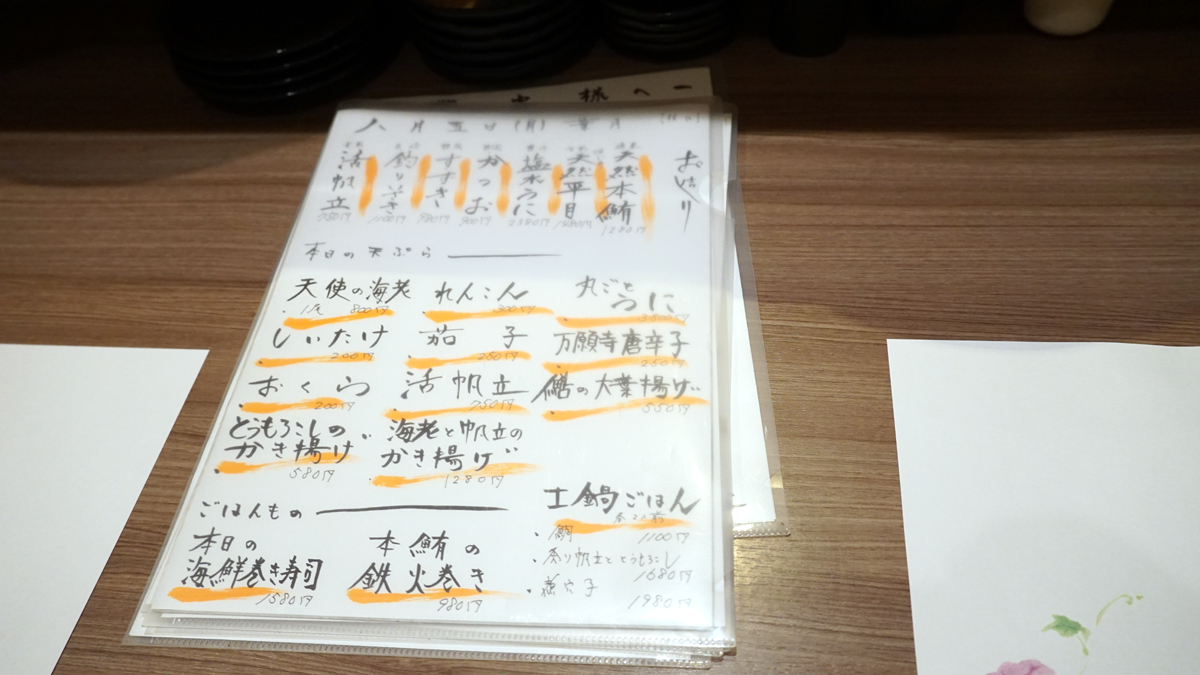 様へ
八月五日(月)
おつくり
天然本鮪
1280円
天然平目
1480円
塩水うに
2380円
かつお
900円
すずき
980円
釣りいさき
1100円
活帆立
750円
本日の天ぷら
天使の海老
1尾 800円
れんこん
300円
丸ごと
うに
しいたけ
200円
茄子
280円
万願寺唐辛子
250円
おくら
200円
活帆立
750円
の大葉揚げ
550円
とうもろこしの
かき揚げ
580円
海老と帆立の
かき揚げ
1280円
ごはんもの
本日の
海鮮巻き寿司
1580円
本鮪の
鉄火巻き
980円
土鍋ごはん
鯛
1100円
炙り帆立ととうもろこし
1680円
穴子
1980円